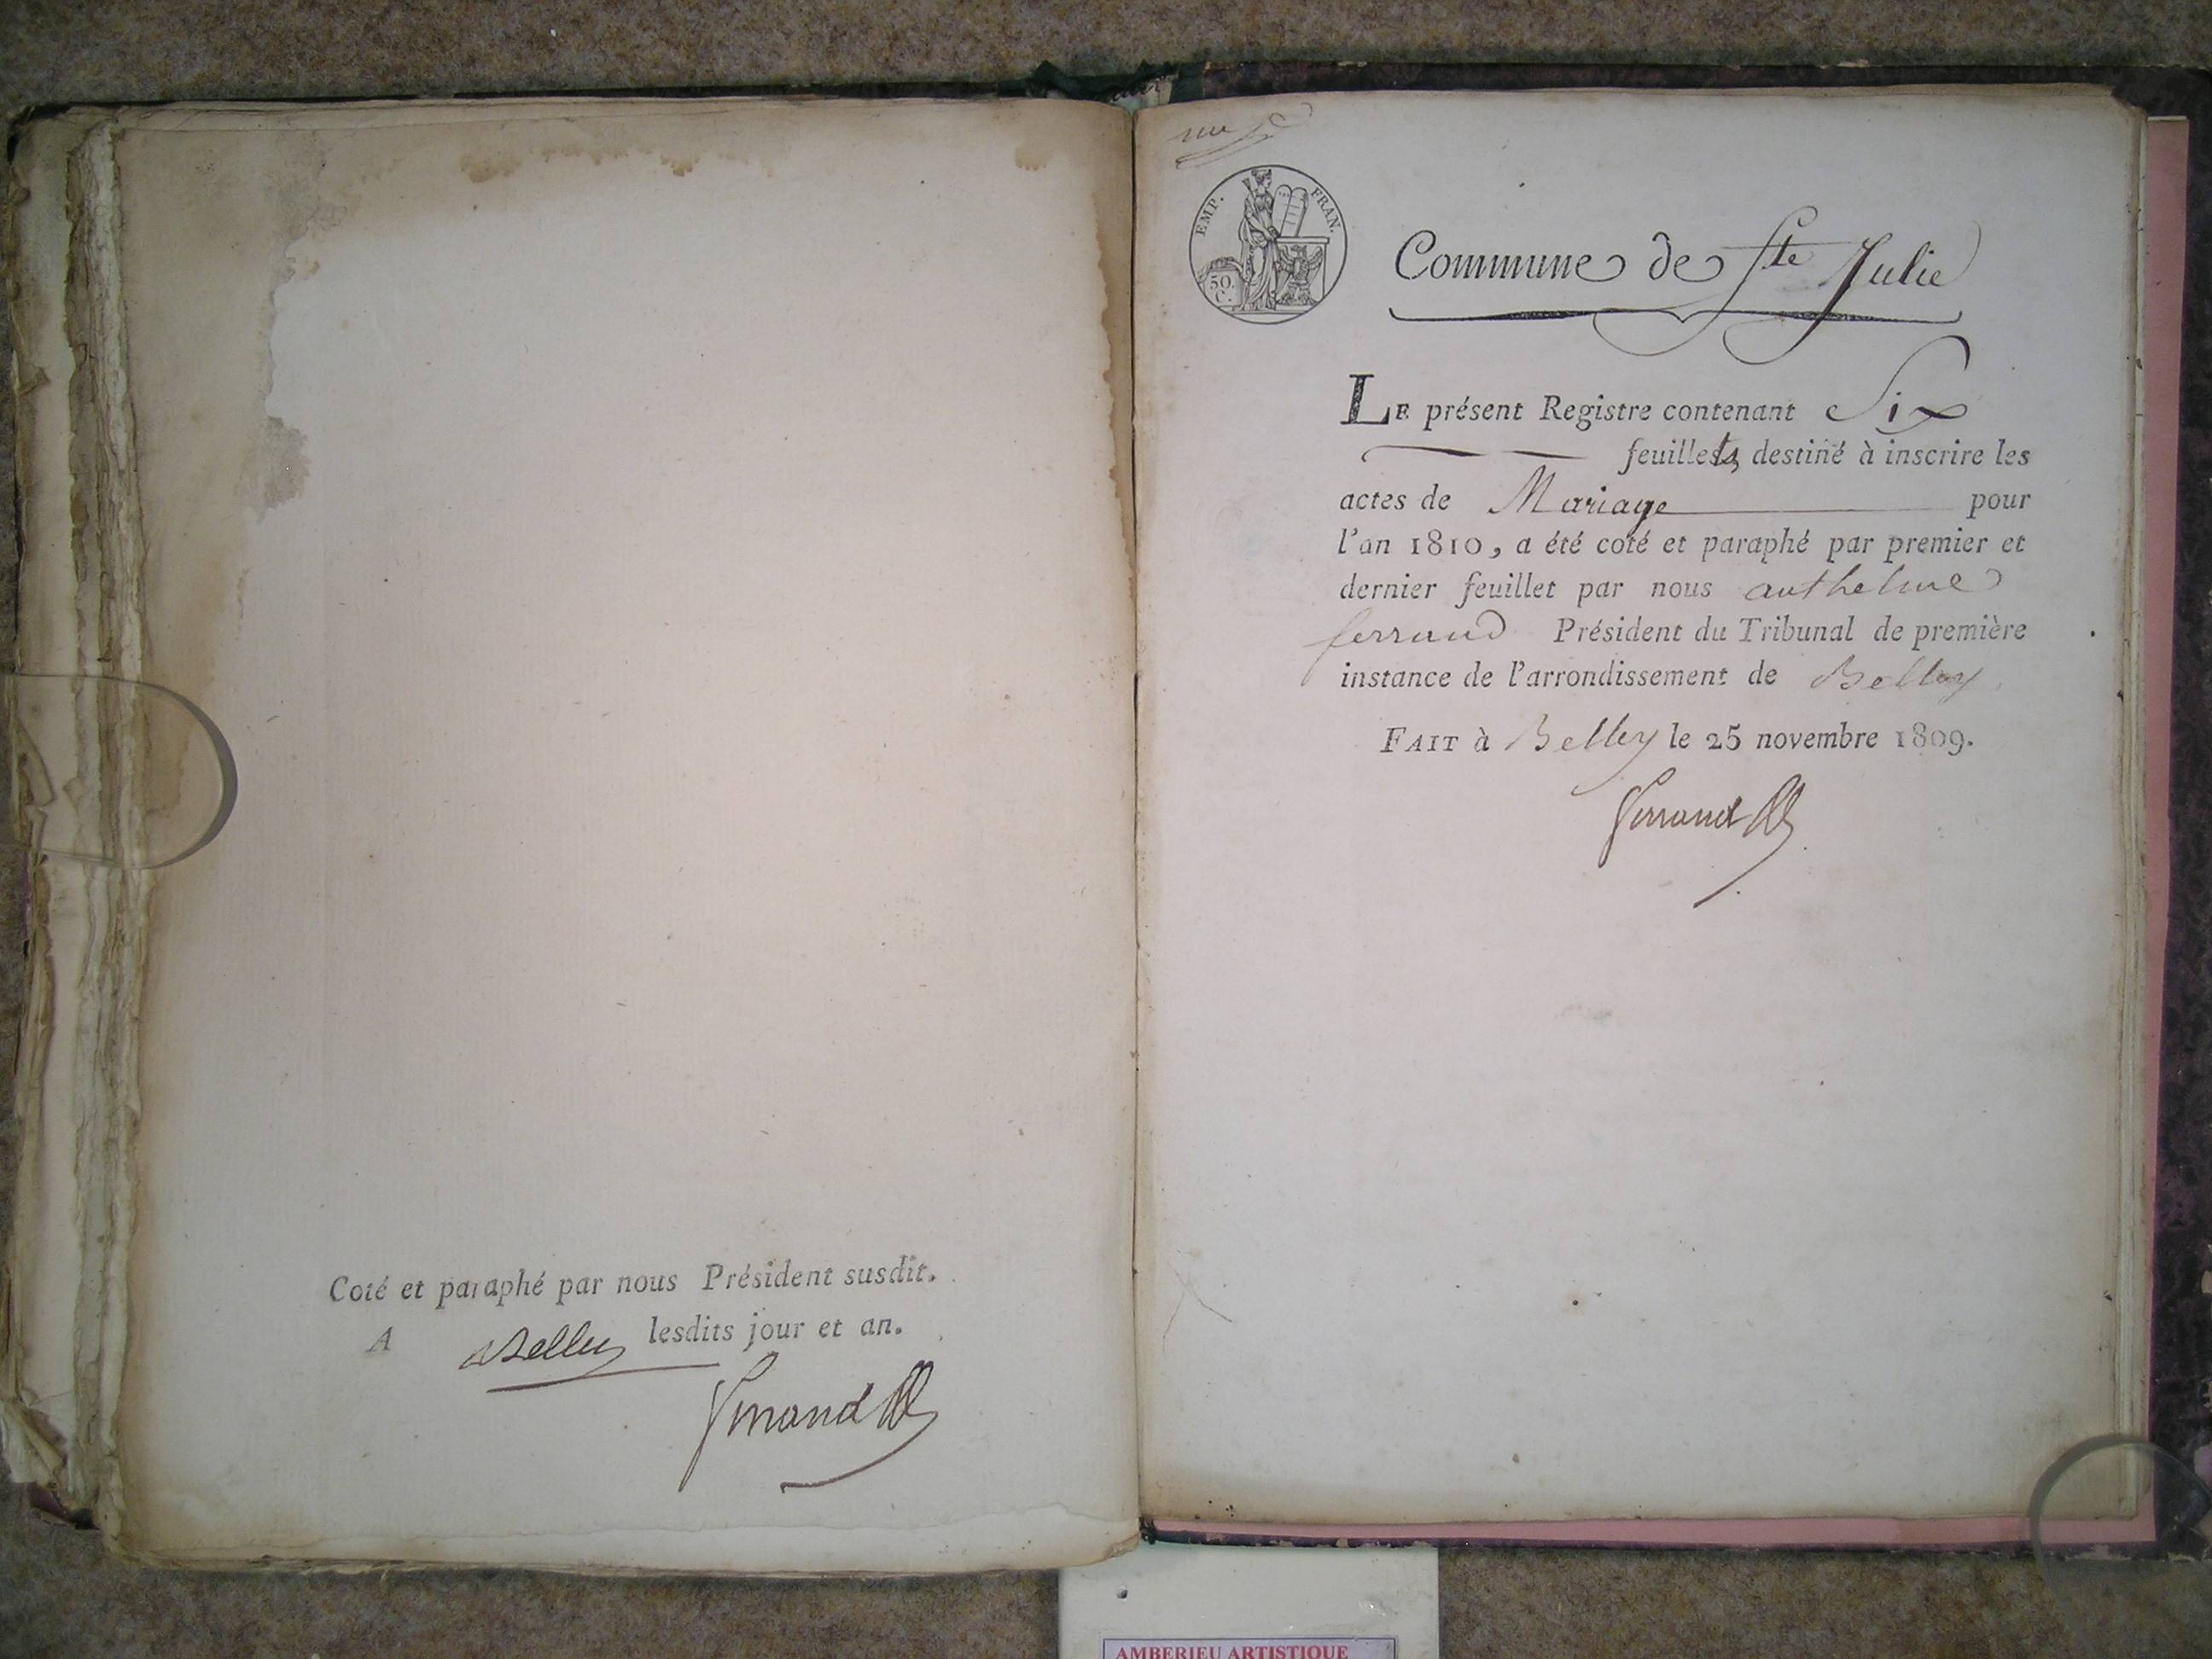 Coté et paraphé par nous Président susdit.
A Belley lesdits jour et an.
Ferrand
EMP. FRAN.
50.
C.
Commune de Ste Julie
LE présent Registre contenant Six
feuillets, destiné à inscrire les
actes de Mariage pour
l'an 1810, a été coté et paraphé par premier et
dernier feuillet par nous anthelme
ferrand Président du Tribunal de première
instance de l'arrondissement de Belley
FAIT à Belley le 25 novembre 1809.
Ferrand
AMBERIEU ARTISTIQUE